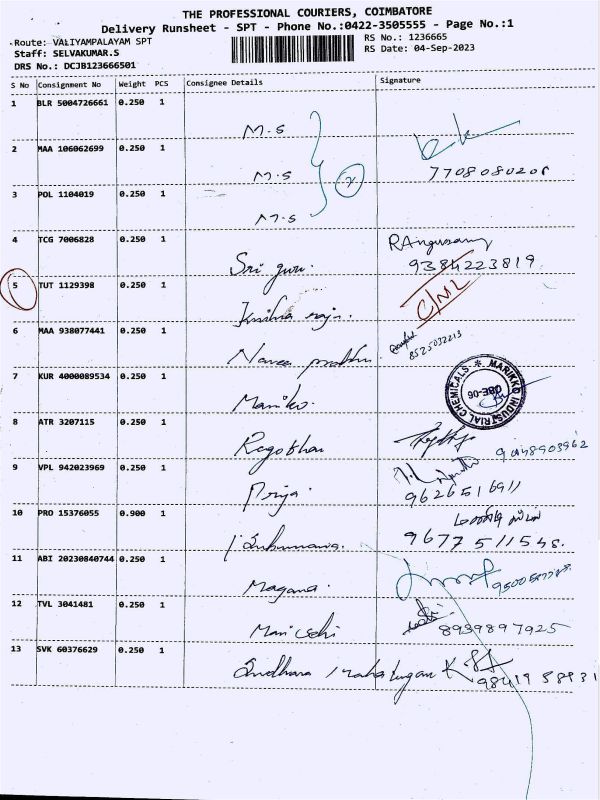 THE PROFESSIONAL COURIERS, COIMBATORE
Delivery Runsheet - SPT - Phone No.:0422-3505555 - Page No.:1
Route: VALIYAMPALAYAM SPT
RS No.: 1236665
Staff: SELVAKUMAR.S
RS Date: 04-Sep-2023
DRS No.: DCJB123666501
S No Consignment No Weight PCS Consignee Details Signature
1 BLR 5004726661 0.250 1
M.S
2 MAA 106062699 0.250 1
M.S 7708080206
3 POL 1104019 0.250 1
M.S
4 TCG 7006828 0.250 1
Sri guru. 9384223819
5 TUT 1129398 0.250 1
Krishna raja. C/ML
6 MAA 938077441 0.250 1
Naveen prabhu 8525032213
7 KUR 4000089534 0.250 1
Mariko. MARIKKO INDUSTRIAL CHEMICALS * CBE-06
8 ATR 3207115 0.250 1
Ragobhav
9 VPL 942023969 0.250 1
Priya. 9626516911
10 PRO 15376055 0.900 1
11 ABI 20230840744 0.250 1
Magana.
12 TVL 3041481 0.250 1
8939897925
13 SVK 60376629 0.250 1